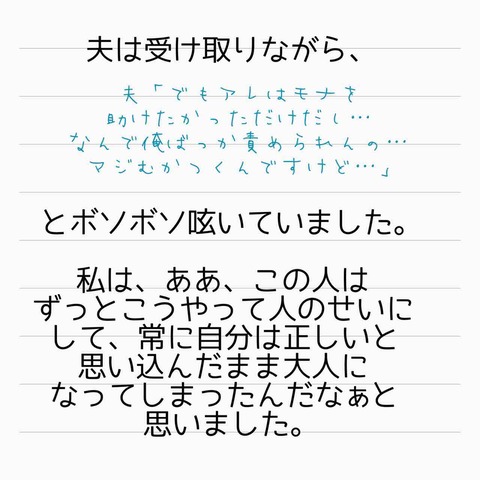 夫は受け取りながら、
夫「でもアレはモナを
助けたかっただけだし…
なんで俺ばっか責められんの…
マジむかつくんですけど…」
とボソボソ呟いていました。
私は、ああ、この人は
ずっとこうやって人のせいに
して、常に自分は正しいと
思い込んだまま大人に
なってしまったんだなぁと
思いました。